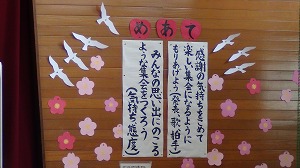 めあて
感謝の気持ちをこめて
楽しい集会になるように
もりあげよう(全長、歌、拍手)
みんなの思い出にのこる
ような集会をつくろう
(気持ち、態度)